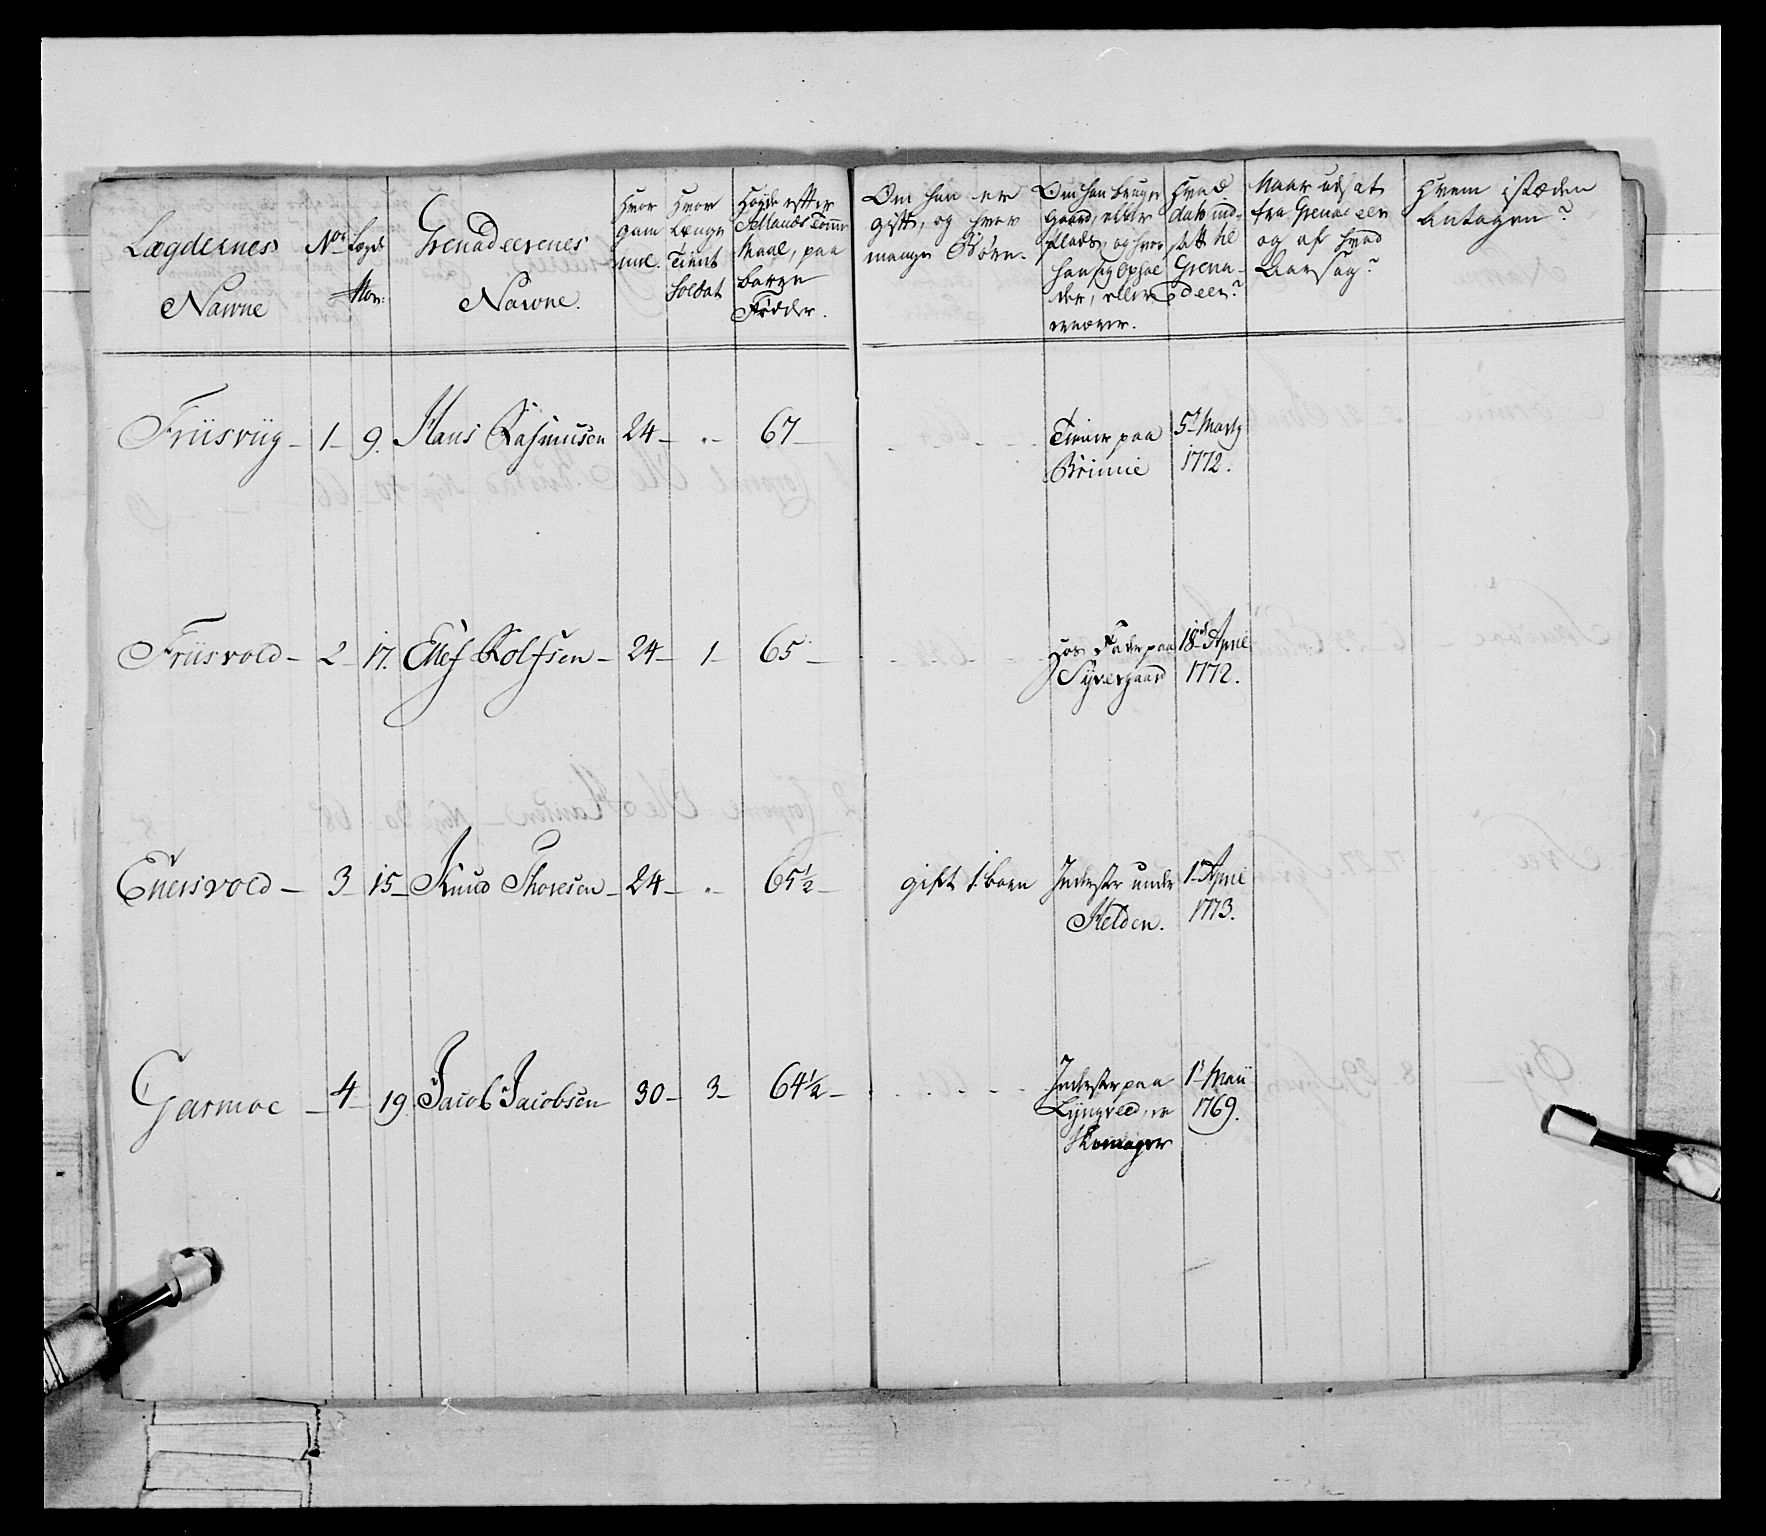 Lægdernes Nawne
No.
Lægds Nor:
Grenadeerenes Nawne.
Hvor gammel.
Hvor Længe Tient Soldat
Høyde efter Sellands Tomme Maal, paa barre Fødder.
Om han er gift, og hvor mange Børn.
Om han bruger gaard, eller Plads, og hvor han sig opholder, eller ernærer.
Hvad dato indsatt til Grenadeer?
Naar udsat fra Grenadeer og af hvad Aarsag?
Hvem istæden Antagen?
Friisviig – 1 – 9. Hans Rasmusen 24 – " – 67 – Tiener paa Brimie 5t Marty 1772.
Friisvold – 2 – 17. Ellef Rolfsen – 24 – 1 – 65 – Hos Fader paa Syvergaard 18d April 1772.
Enersvold – 3 – 15 – Knud Thoresen – 24 – " – 65½ – gift 1. barn Inderster under Helden. 1t April 1773.
Garmoe – 4 – 19. Jacob Jacobsen 30 – 3 – 64½ – Inderster paa Lyngved, er Skomager 1t Maii 1769.